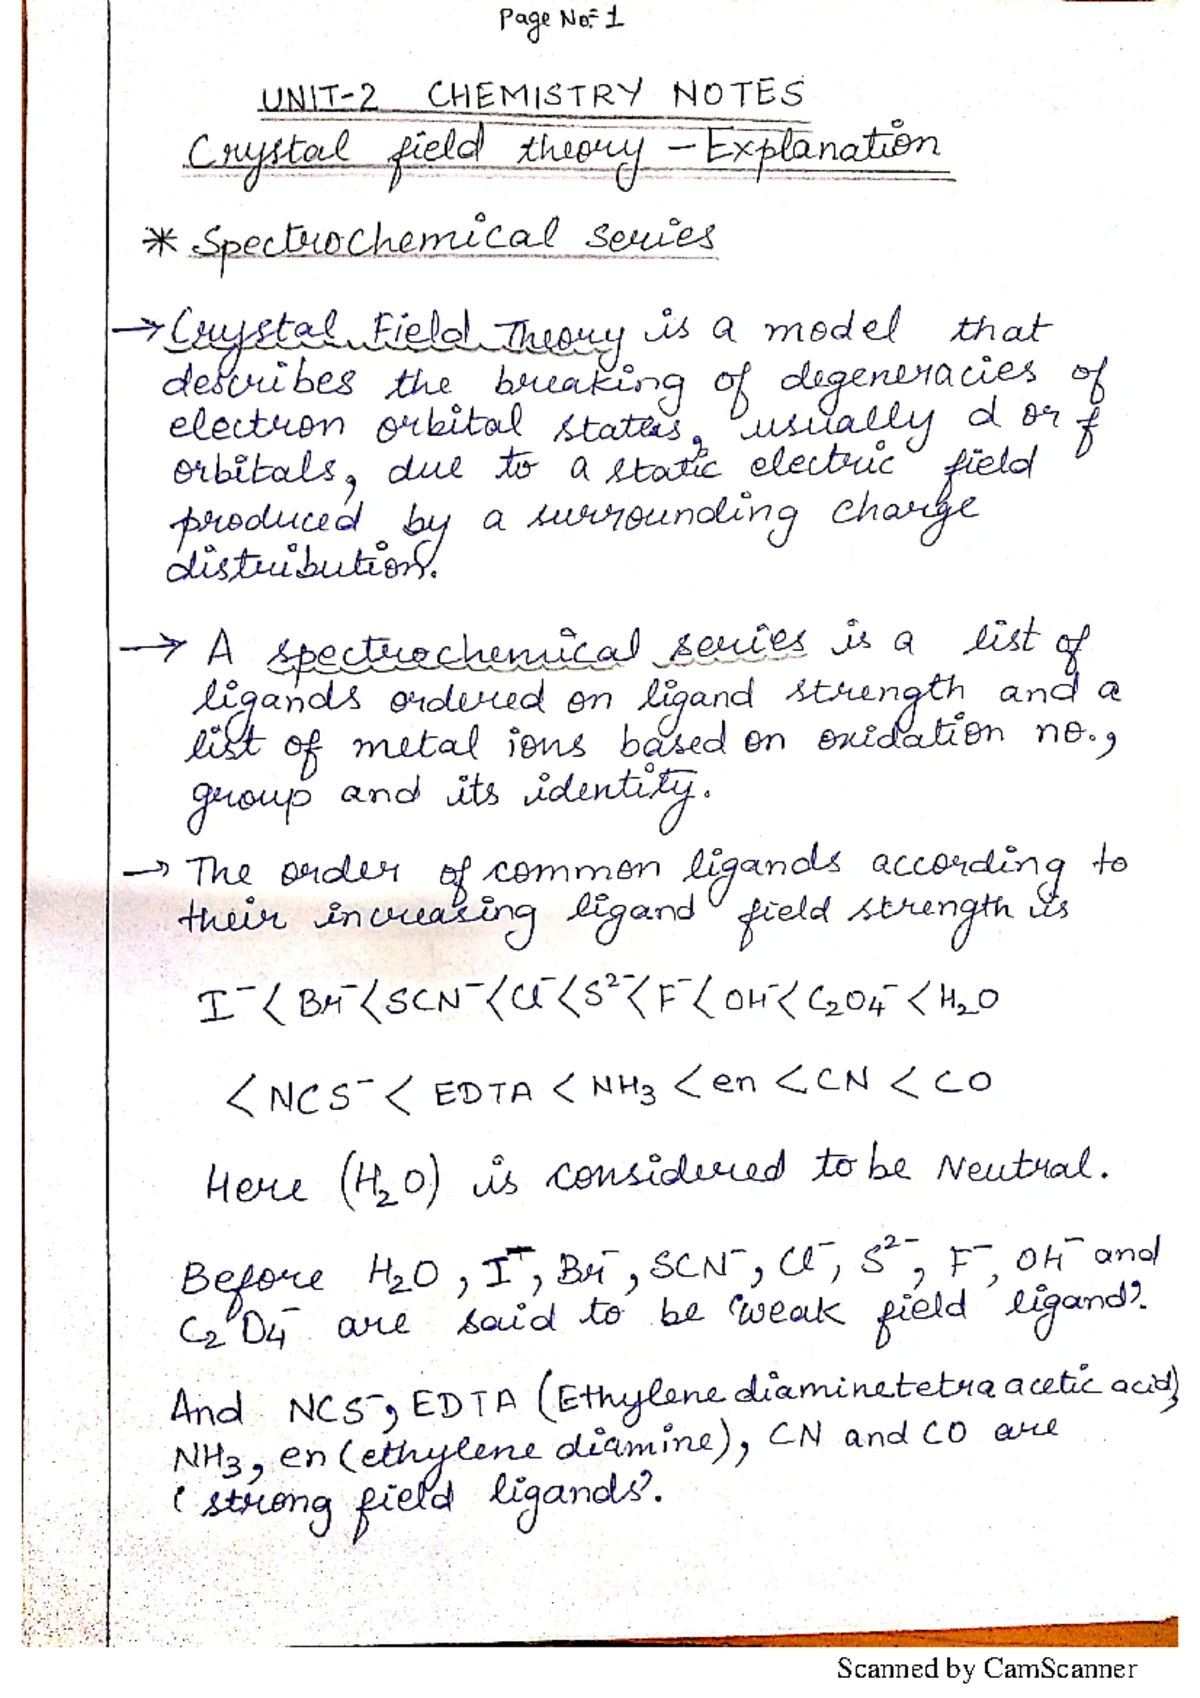 Page No:- 1
UNIT-2 CHEMISTRY NOTES
Crystal field theory - Explanation
* Spectrochemical series
→ Crystal Field Theory is a model that
describes the breaking of degeneracies of
electron orbital states, usually d or f
orbitals, due to a static electric field
produced by a surrounding charge
distribution.
→ A spectrochemical series is a list of
ligands ordered on ligand strength and a
list of metal ions based on oxidation no.,
group and its identity.
→ The order of common ligands according to
their increasing ligand field strength is
I⁻ < Br⁻ < SCN⁻ < Cl⁻ < S²⁻ < F⁻ < OH⁻ < C₂O₄⁻ < H₂O
< NCS⁻ < EDTA < NH₃ < en < CN < CO
Here (H₂O) is considered to be Neutral.
Before H₂O, I⁻, Br⁻, SCN⁻, Cl⁻, S²⁻, F⁻, OH⁻ and
C₂O₄⁻ are said to be 'weak field ligand'.
And NCS⁻, EDTA (Ethylenediaminetetraacetic acid),
NH₃, en (ethylene diamine), CN and CO are
'strong field ligands'.
Scanned by CamScanner